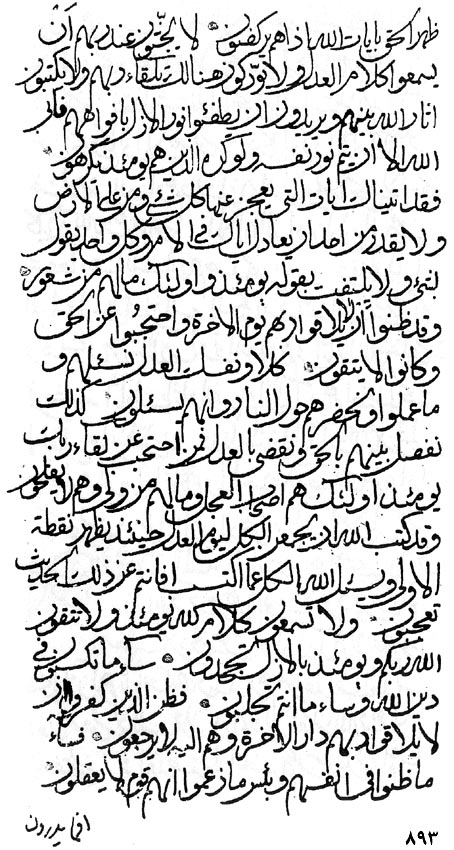 ظهر الحق بايات الله اذا هم يكفرون لا يحبون عند ربهم ان
يسمعوا كلام العدل ولا هنالك بلقاء ربهم ولا يكتبون
اثار الله بينهم ويريدون ان يطفئوا نور الازل بافواههم فابى
الله الا ان يتم نور نفسه ولو كره الذين هم يومئذ يكرهون
فقد اتيناك ايات التي يعجز عنها كل شئ ومن على الارض
ولا يقدر من احد ان يعادل اياك في الامر وكل واحد يقول
بشئ ولا يلتفت بقوله يومئذ واولئك مالهم من شعور
وقد ظنوا ان لا يلاقوا ربهم يوم الاخرة واحتجبوا عن الحق
وكانوا لا يتقون كلا ونفسك العدل نسئلهم و
ما عملوا ونحضرهم حول النار وانهم يسئلون كذلك
نفصل بينهم بالحق ونقضي بالعدل فمن احتجب عن لقاء ربك
يومئذ اولئك هم اصحاب العجل ومالهم من ولي وهم لا يفلحون
وقد كتب الله ان يجمعن الكل ليوم العدل حينئذ يظهر نقطة
الاولى ويسئل الله الكل عما اكتسب افانتم عن ذلك الحديث
تعجبون ولا تسمعون كلام الله يومئذ ولا تتقون
الله ربكم ويومئذ بالازل تجحدون ساء ما تكسبون في
دين الله وساء ما انتم تجلبون فظن الذين كفروا ان
لا يلاقوا ربهم دار الاخرة وهم اليه لا يرجعون فساء
ما ظنوا في انفسهم وبئس ما زعموا انهم قوم لا يعقلون
افما يدرون
٨٩٣